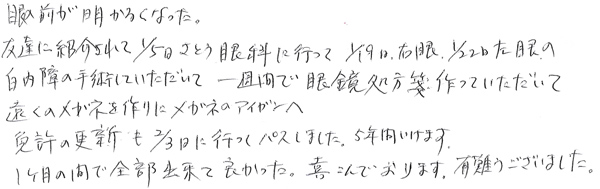 眼前が明かるくなった。
友達に紹介されて 1/5日さとう眼科に行って 1/19日.右眼.1/22日左眼の
白内障の手術していただいて 一週間で眼鏡処方箋作っていただいて
遠くのメガネを作りにメガネのアイガンへ
免許の更新も 2/3日に行っくパスしました. 5年間いけます.
1ヶ月の間で全部出来て良かった。喜こんでおります. 有難うございました。